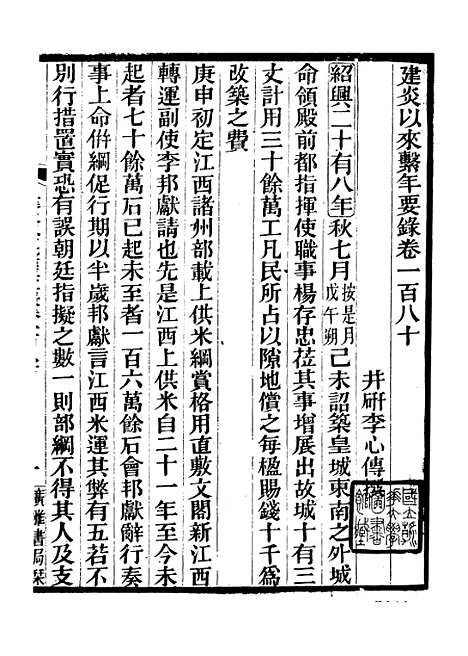 建炎以來繫年要錄卷一百八十
井研李心傳
紹興二十有八年秋七月按是月戊午朔己未詔築皇城東南之外城
命領殿前都指揮使職事楊存忠莅其事增展出故城十有三
丈計用三十餘萬工凡民所占以隙地償之每楹賜錢十千爲
改築之費
庚申初定江西諸州部載上供米綱賞格用直敷文閣新江西
轉運副使李邦獻請也先是江西上供米自二十一年至今未
起者七十餘萬石已起未至者一百六萬餘石會邦獻辭行奏
事上命倂綱促行期以半歲邦獻言江西米運其弊有五若不
別行措置實恐有誤朝廷指擬之數一則部綱不得其人及支
一
廣雅書局栞